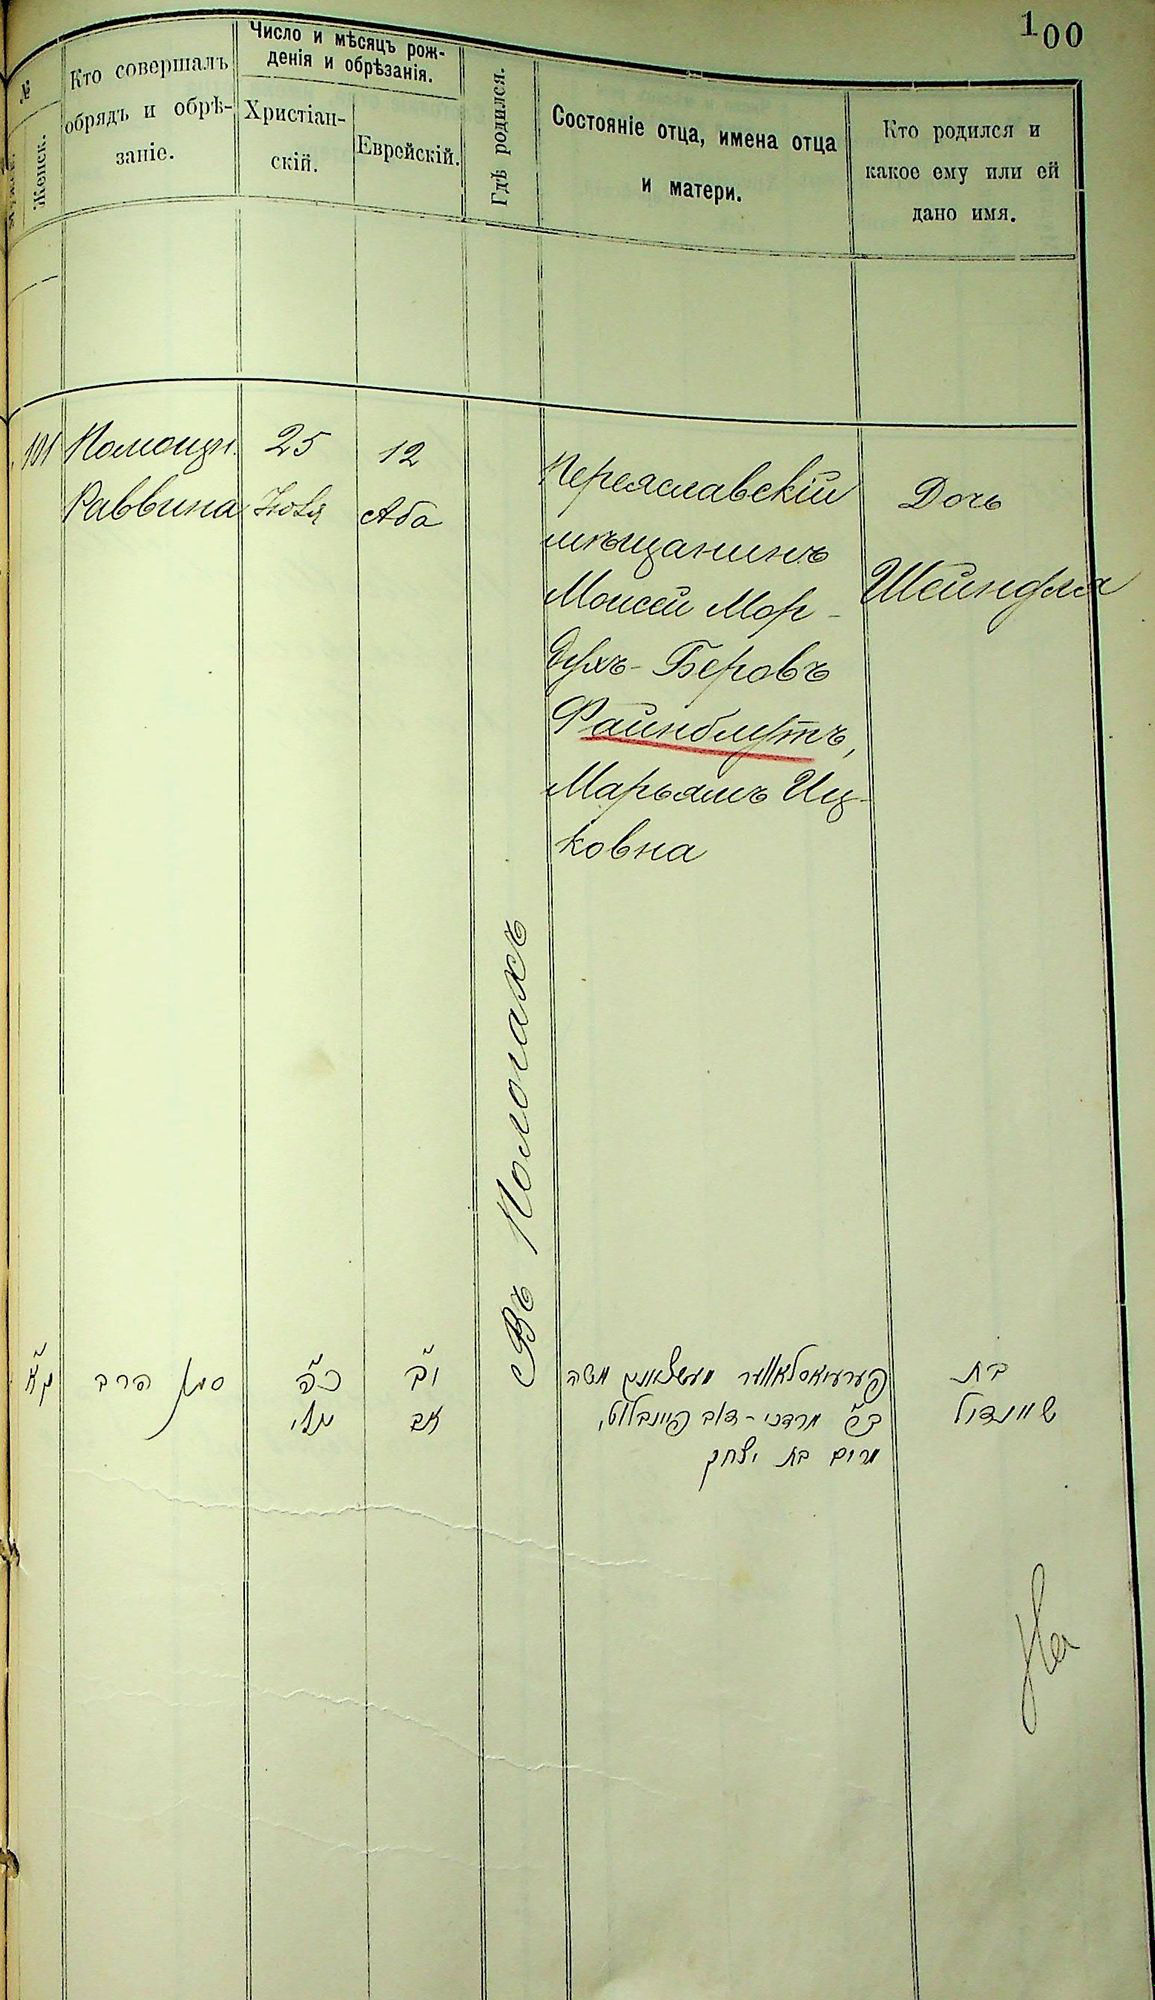 100
№
Женск.
Кто совершалъ
обрядъ и обрѣ-
заніе.
Число и мѣсяцъ рож-
денія и обрѣзанія.
Христіан-
скій.
Еврейскій.
Гдѣ родился.
Состояніе отца, имена отца
и матери.
Кто родился и
какое ему или ей
дано имя.
101
Помощн.
Раввина
25
Іюля
12
Аба
Въ Пологахъ
Переяславскій
мѣщанинъ
Моисей Мор-
духъ-Беровъ
Файнблутъ,
Марьямъ Иц-
ковна
Дочь
Шейндля
ק״א
סגן הרב
כ״ה
יולי
י״ב
אב
פערעיאסלאווער מעשצאנין משה
ב״ר מרדכי-דוב פיינבלוט,
מרים בת יצחק
בת
שיינדיל